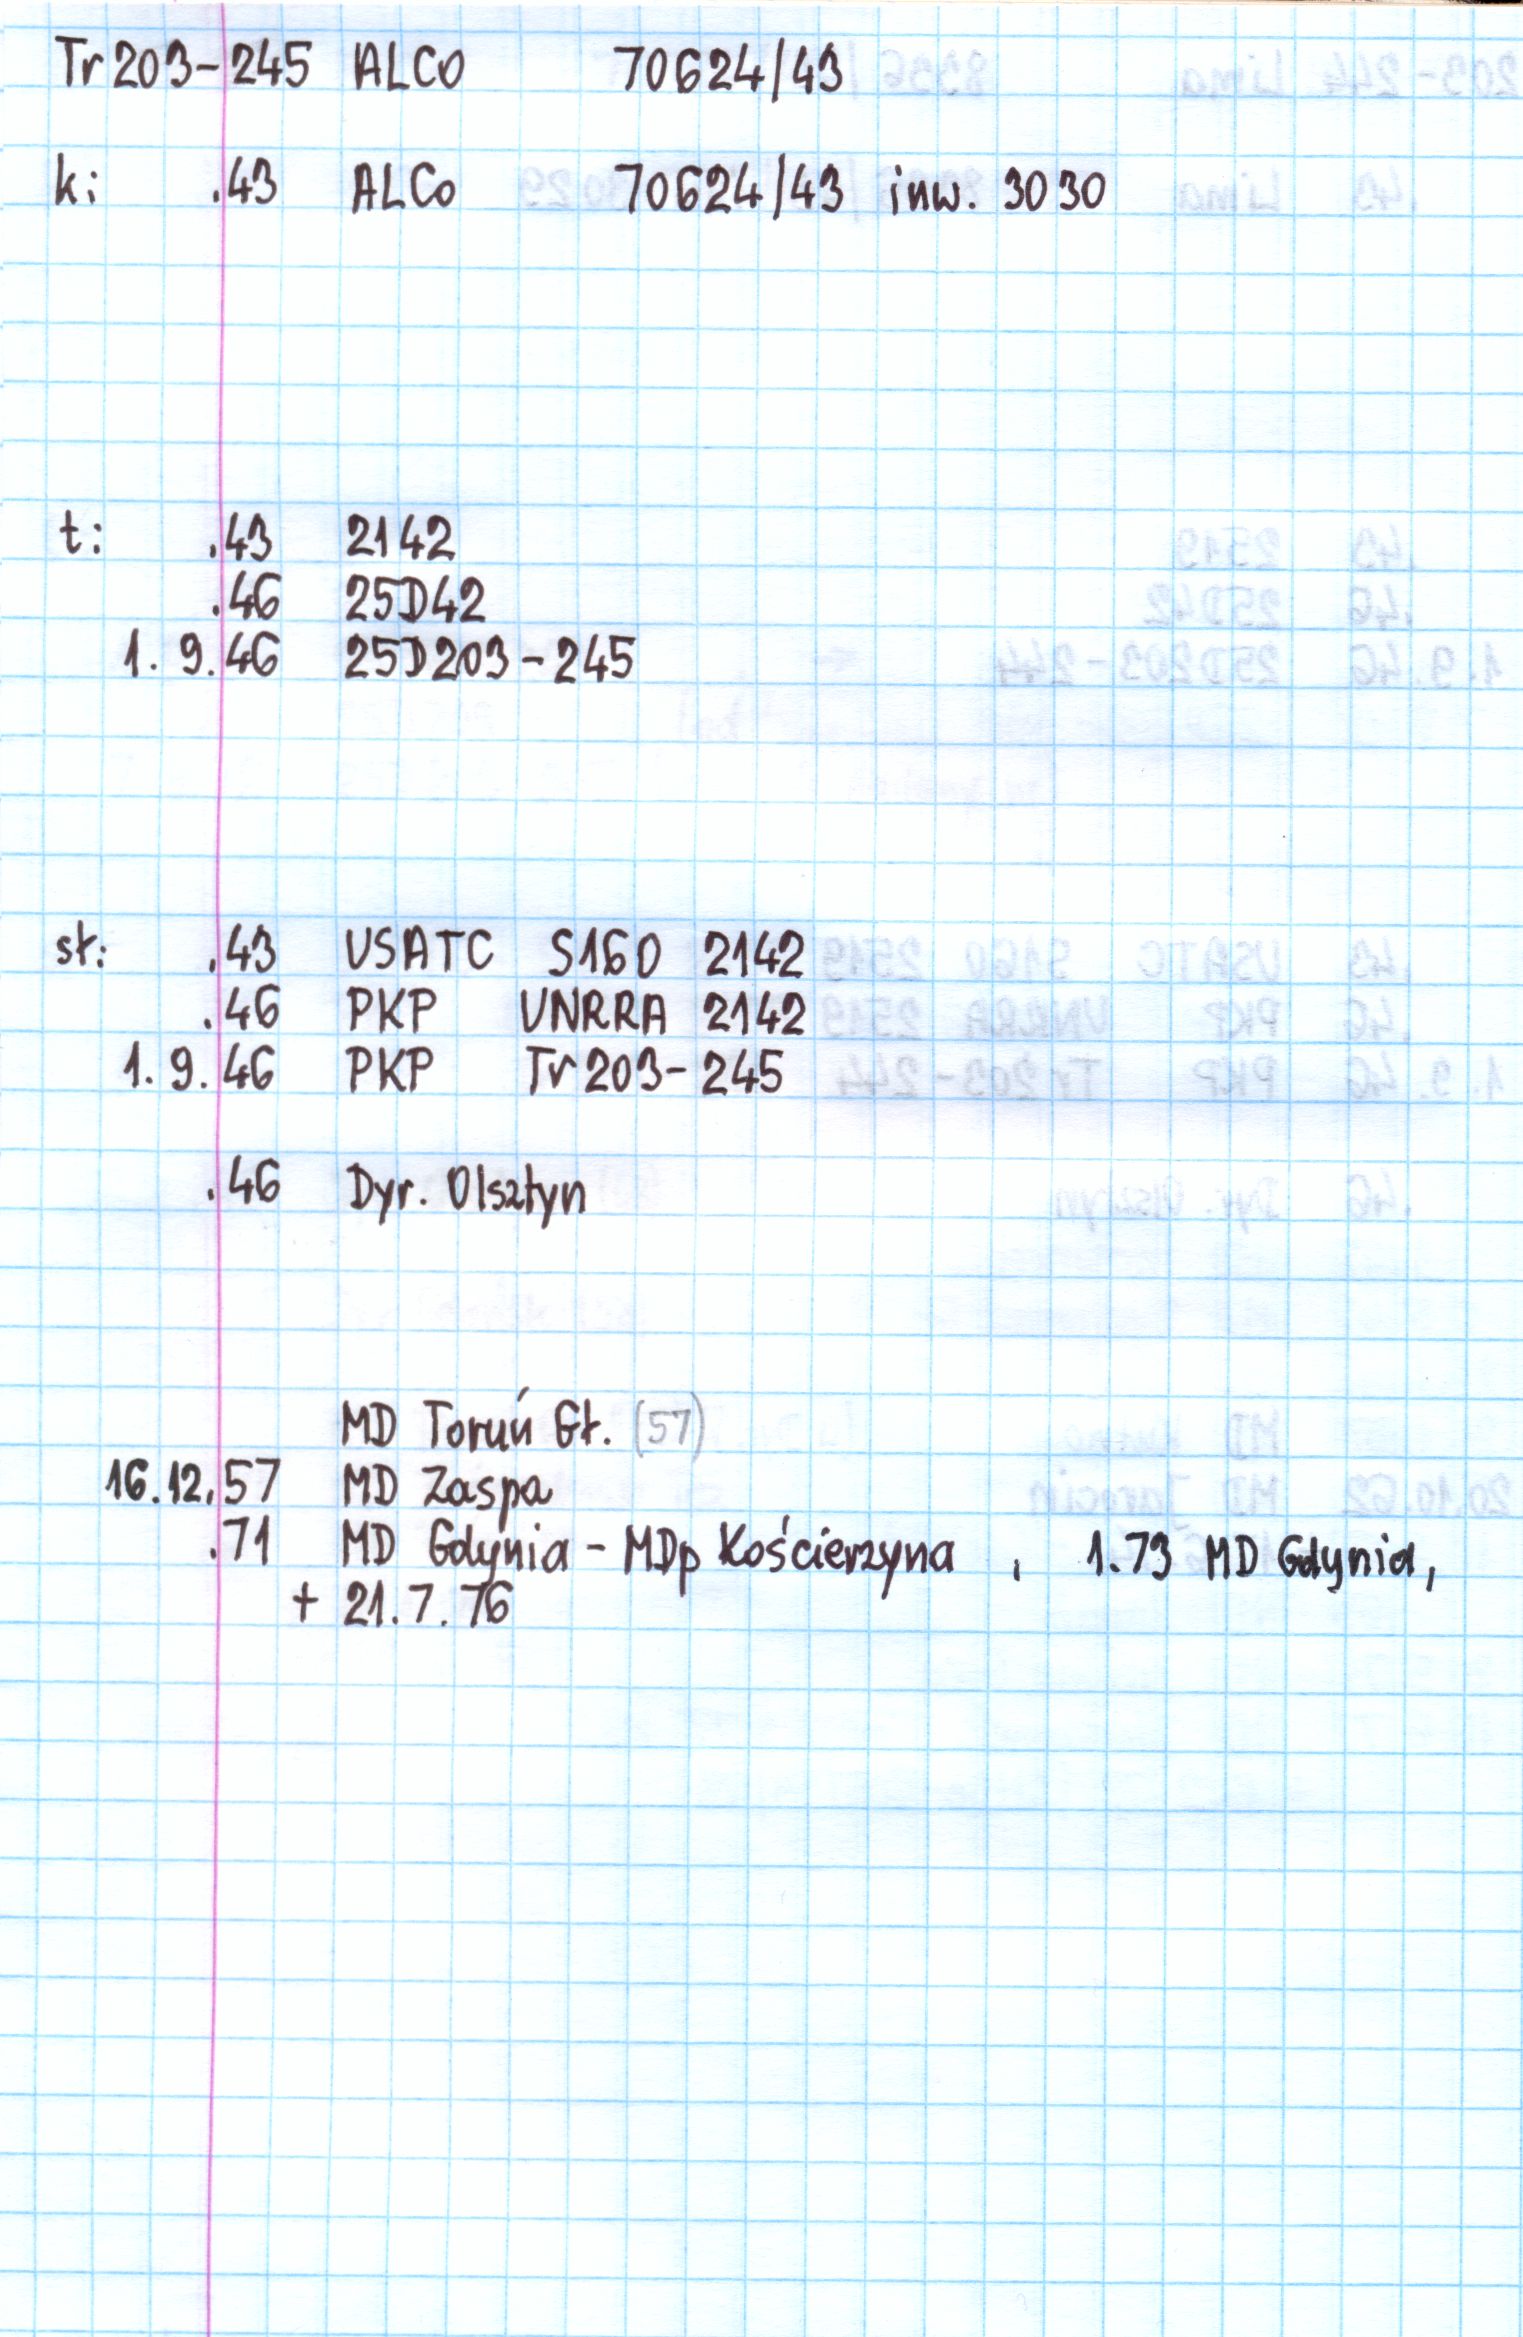 Tr203-245 ALCO 70624/43
k: .43 ALCo 70624/43 inw. 3030
t: .43 2142
.46 25D42
1. 9.46 25D203-245
st: .43 USATC S160 2142
.46 PKP UNRRA 2142
1. 9.46 PKP Tr203-245
.46 Dyr. Olsztyn
MD Toruń Gł. (57)
16.12.57 MD Zaspa
.71 MD Gdynia - MDp Kościerzyna , 1.73 MD Gdynia,
+ 21.7.76